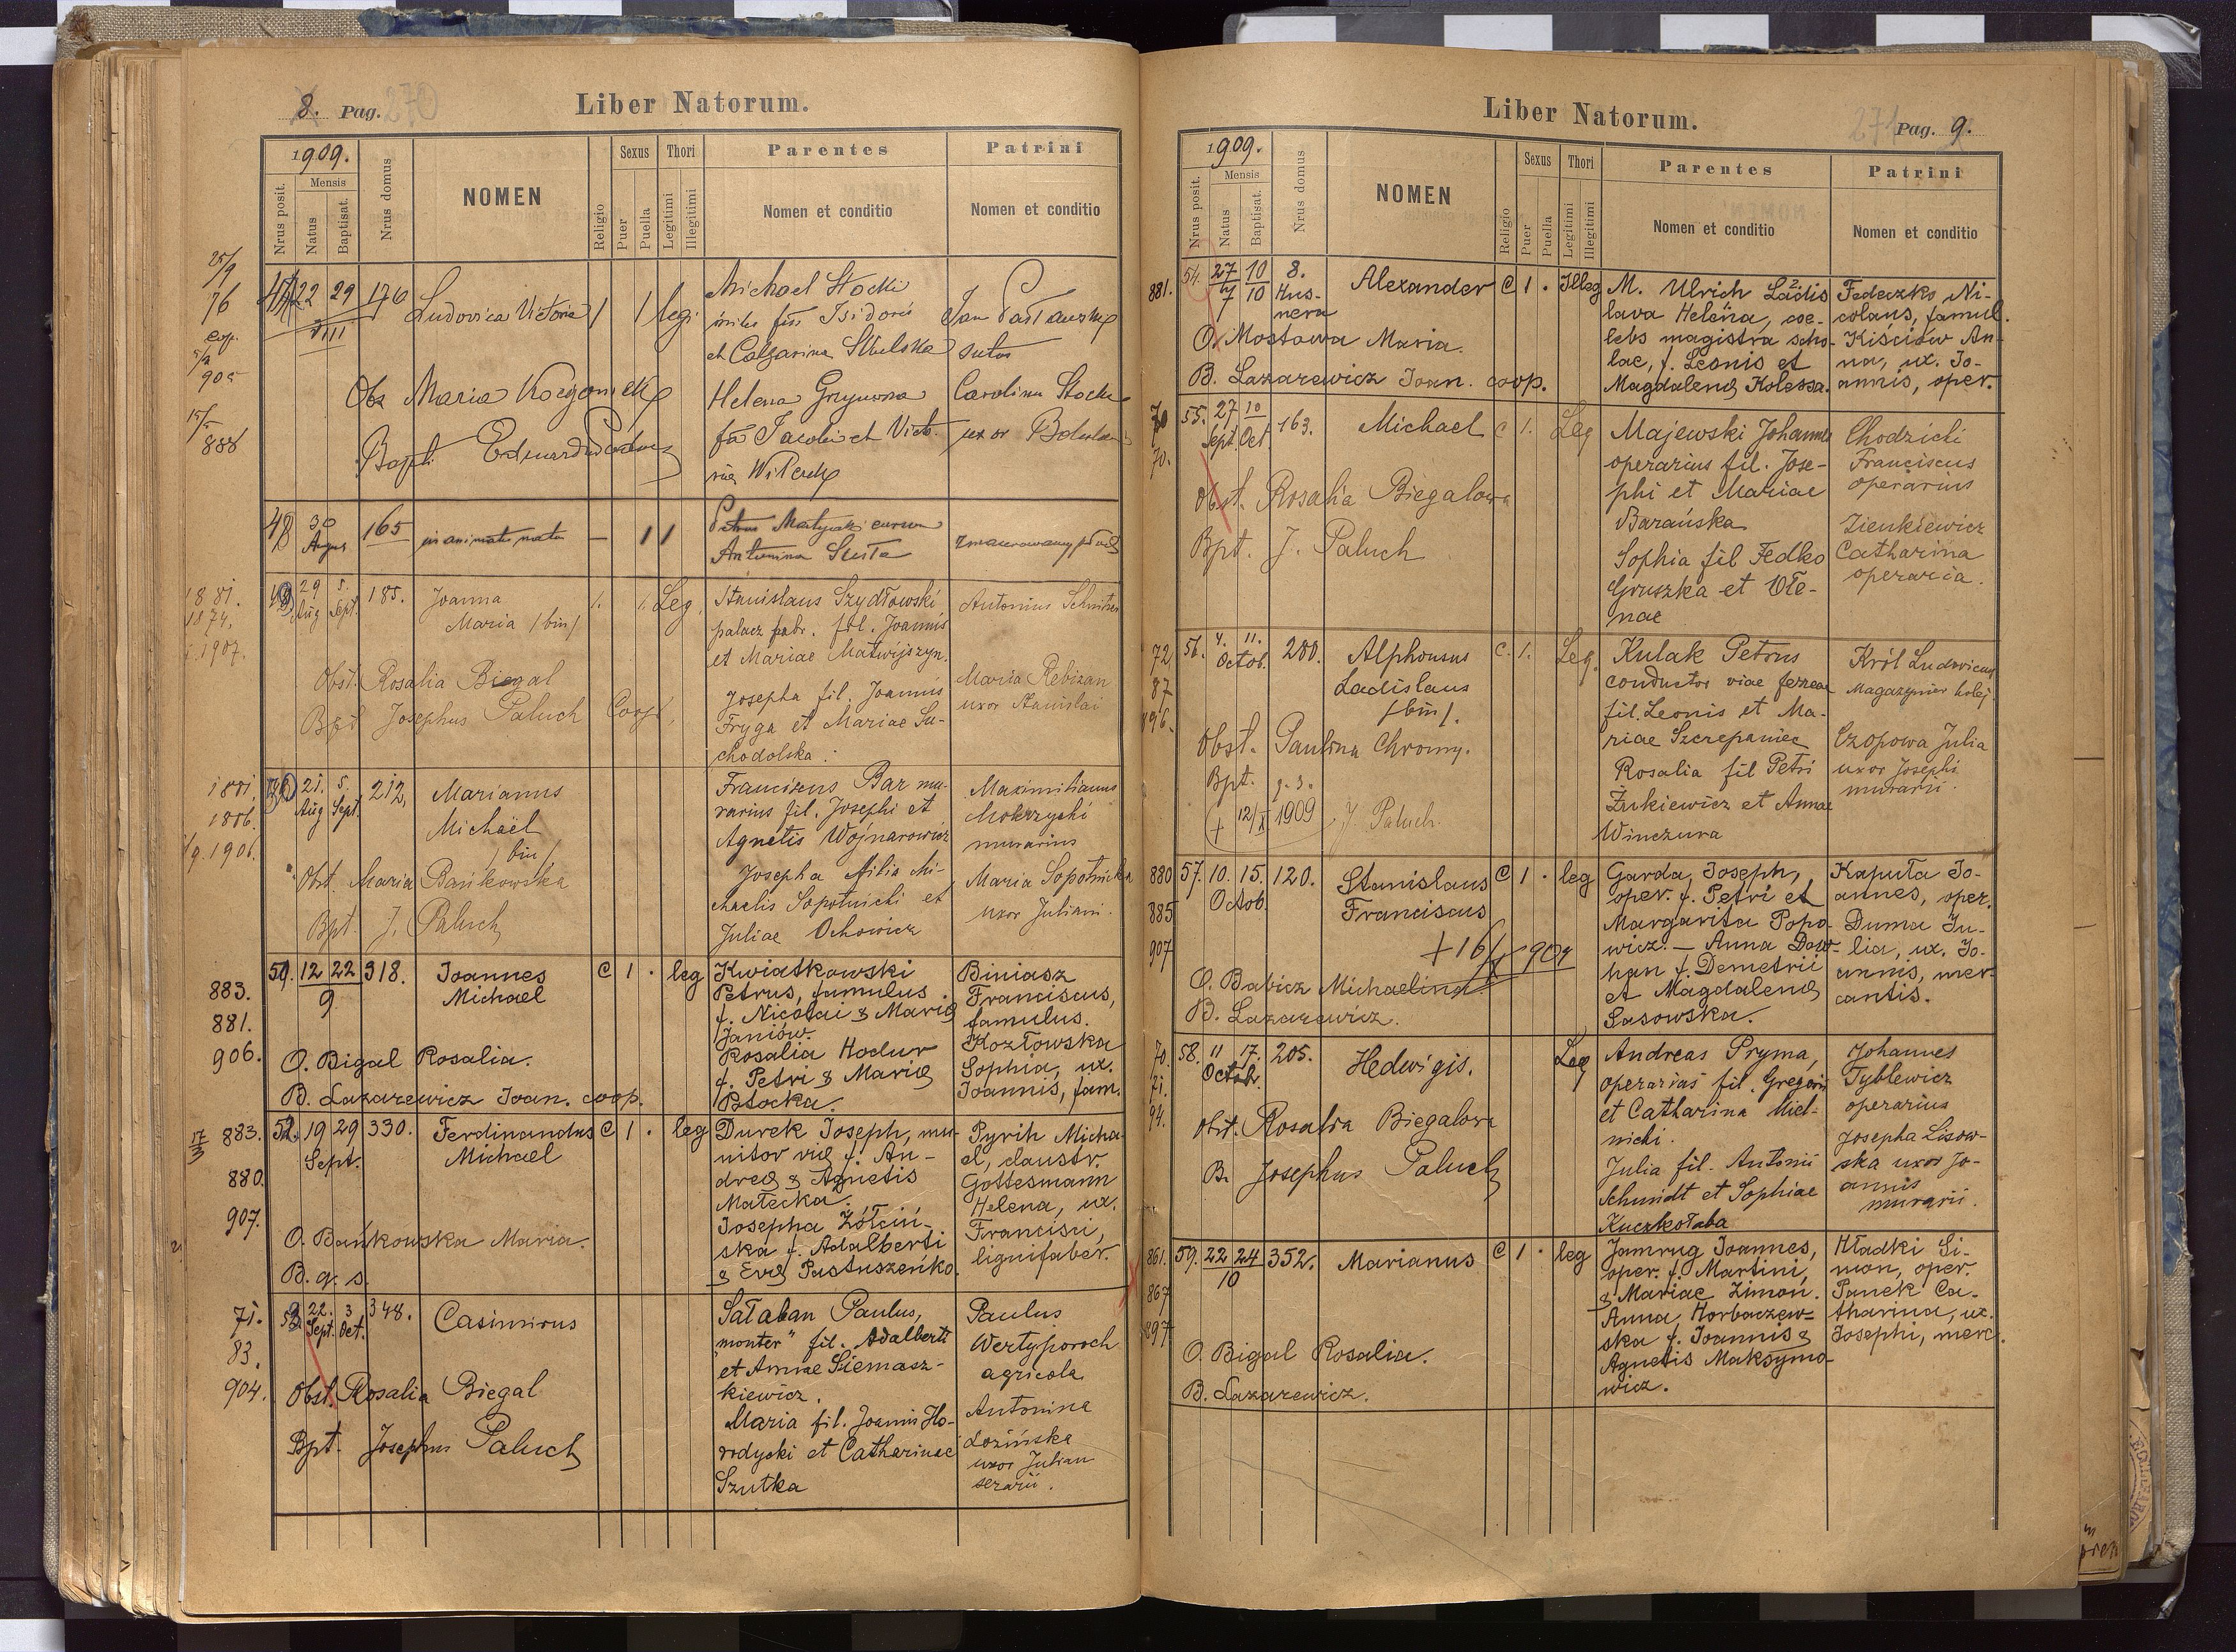 8. Pag. 270
Liber Natorum.
1909.
Nrus posit.
Mensis
Natus
Baptisat.
Nrus domus
NOMEN
Religio
Sexus
Puer
Puella
Thori
Legitimi
Illegitimi
Parentes
Nomen et conditio
Patrini
Nomen et conditio
25/9
76
cop.
22 29 176 Ludovica Victoria 1 1 legi
VIII
Michael Stocki
fil Isidoris
et Catharina
Helena
fil Jacobi et Victo-
ria
Jan
sutor
Carolina Stocka
uxor
Obs Maria
Bapti
888
48 30 Augus 165 inanimata nata — 1 1
Petrus
Antonina
1881.
1874.
1907.
49 29 Aug 5. Sept. 185. Joanna 1. 1. Leg.
Maria /bin/
Stanislaus Szydłowski
palacz fabr. fil. Joannis
et Mariae Matwijszyn.
Josepha fil. Joannis
Fryga et Mariae Su-
chodolska.
Antonius
Maria Rebizan
uxor Stanislai
Obst. Rosalia Biegal
Bpt. Josephus Paluch Coop.
1881.
1886.
1906.
21. Aug 5. Sept. 212. Marianus
Michaël
/bin/
Franciscus Bar mu-
rarius fil. Josephi et
Agnetis Wojnarowicz
Josepha filia Mi-
chaelis Sopotnicki et
Juliae Ochowicz
Maximilianus
Mokrzycki
murarius
Maria Sopotnicka
uxor Juliani.
Obst. Maria Bańkowska
Bpt. J. Paluch
883.
881.
906.
12 22 318. Joannes C 1 . leg
9 Michael
Kwiatkowski
Petrus, famulus
f. Nicolai & Mariæ
Janiów.
Rosalia Hodur
f. Petri & Mariæ
Potocka.
Biniasz
Franciscus,
famulus.
Kozłowska
Sophia, ux.
Joannis, fam.
O. Bigal Rosalia.
B. Lazarewicz Joan. coop.
17/3 883.
880.
907.
52. 19 29 330. Ferdinandus C 1 . leg
Sept. Michael
Durek Joseph, mu-
nitor viæ f. An-
dreæ & Agnetis
Małecka.
Josepha Żółciń-
ska f. Adalberti
& Evæ Pastuszeńko.
Pyrih Micha-
el, claustr.
Gottesmann
Helena, ux.
Francisci,
lignifaber.
O. Bańkowska Maria.
B. q. s.
71.
83.
904.
53. 22. Sept. 3 Oct. 348. Casimirus
Sałaban Paulus,
"monter" fil. Adalberti
et Annae Siemasz-
kiewicz.
Maria fil. Joannis Ho-
rodyski et Catharinae
Szutka
Paulus
Wertyporoch
agricola
Antonina
Łozińska
uxor Julian
serarii.
Obst. Rosalia Biegal
Bpt. Josephus Paluch
Liber Natorum.
271 Pag. 9.
1909.
Nrus posit.
Mensis
Natus
Baptisat.
Nrus domus
NOMEN
Religio
Sexus
Puer
Puella
Thori
Legitimi
Illegitimi
Parentes
Nomen et conditio
Patrini
Nomen et conditio
881. 54. 27 10 8. Alexander C 1 . Illeg
7 10 Hus-
nera
M. Ulrich Ladis-
lava Helena, coe-
lebs magistra scho-
lae, f. Leonis et
Magdalenæ Kolessa.
Fedeczko Ni-
colaus, famul.
Kiściów An-
na, ux. Jo-
annis, oper.
O. Mostowa Maria.
B. Lazarewicz Joan. coop.
70
70.
55. 27 Sept. 10 Oct. 163. Michael C 1. Leg
Majewski Johannes
operarius fil. Jose-
phi et Mariae
Barańska
Sophia fil Fedko
Gruszka et Ole-
nae
Chodzicki
Franciscus
operarius
Zienkiewicz
Catharina
operaria.
Obst. Rosalia Biegalowa
Bpt. J. Paluch
72
87
96.
56. 4. 11. Octob. 280. Alphonsus C. 1. Leg.
Ladislaus
/bin/.
Kulak Petrus
conductor viae ferreae
fil. Leonis et Ma-
riae Szczepaniec
Rosalia fil Petri
Żukiewicz et Annae
Winczura
Król Ludovicus
Magazynier kolej.
Czopowa Julia
uxor Josephi
murarii.
Obst. Paulina Chromy.
Bpt. q. s.
+ 12/X 1909 J. Paluch.
880
885
907
57. 10. 15. 120. Stanislaus C 1 . leg
Octob. Franciscus
+ 16/X 909
Garda Joseph,
oper. f. Petri et
Margarita Popo-
wicz. — Anna Dow-
han f. Demetrii
et Magdalenæ
Sasowska.
Kaputa Jo-
annes, oper.
Duma Ju-
lia, ux. Jo-
annis, mer-
cantis.
O. Babicz Michaelina.
B. Lazarewicz.
70.
71.
94.
58. 11 17. 205. Hedwigis. Leg
Octobr.
Andreas Pryma,
operarius fil. Gregorii
et Catharina Miel-
nicki.
Julia fil. Antonii
Schmidt et Sophiae
Kuczkołaba
Johannes
Tyblewicz
operarius
Josepha Lisow-
ska uxor Jo-
annis
murarii.
Obst. Rosalia Biegalowa
B. Josephus Paluch
861.
867
897
59. 22 24 352. Marianus C 1 . leg
10
Jamrug Joannes,
oper. f. Martini,
& Mariae Zimon.
Anna Horbaczew-
ska f. Joannis &
Agnetis Maksymo-
wicz.
Hładki Si-
mon, oper.
Panek Ca-
tharina, ux.
Josephi, merc.
O. Bigal Rosalia.
B. Lazarewicz.